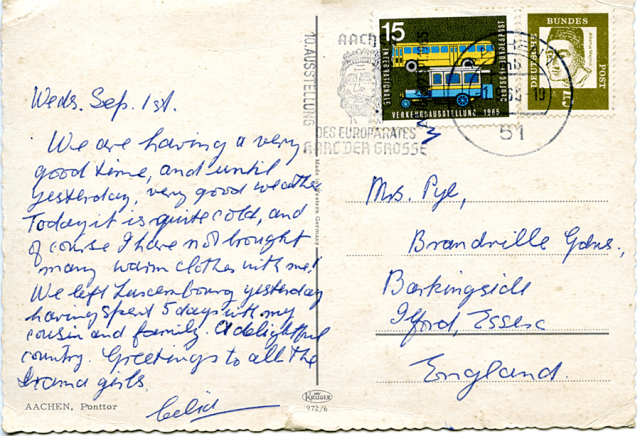 Weds. Sep. 1st.
We are having a very
good time, and until
yesterday, very good weather
Today it is quite cold, and
of course I have not brought
many warm clothes with me!
We left Luxembourg yesterday
having spent 5 days with my
cousin and family. A delightful
country. Greetings to all the
Drama girls.
Celia
AACHEN, Ponttor
10. AUSSTELLUNG
AACHEN
DES EUROPARATES
KARL DER GROSSE
Made in Western Germany
KRÜGER
972/6
15
DEUTSCHE BUNDESPOST
INTERNATIONALE
VERKEHRSAUSSTELLUNG 1965
BUNDES
POST
DEUTSCHE
15
51
Mrs. Pye,
Brandville Gdns.,
Barkingside
Ilford, Essex
England.